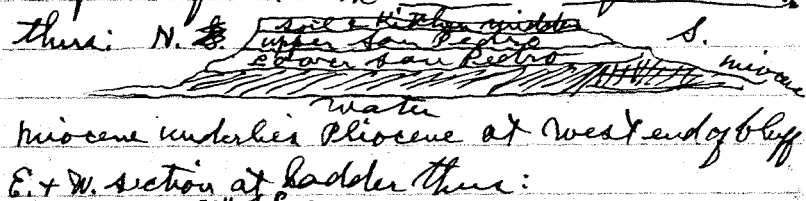 thus: N. S.
soil & Kitchen midden
upper San Pedro
Lower San Pedro
miocene
water
Miocene underlies Pliocene at west end of bluff
E. & W. section at Ladder thus: